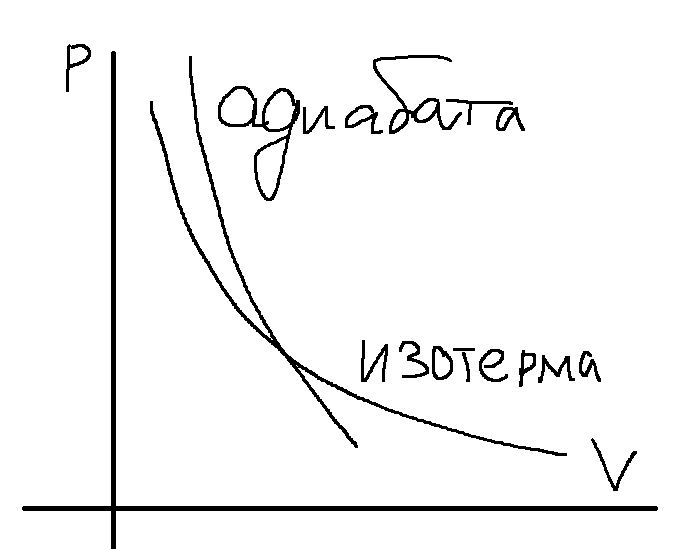 P
адиабата
изотерма
V